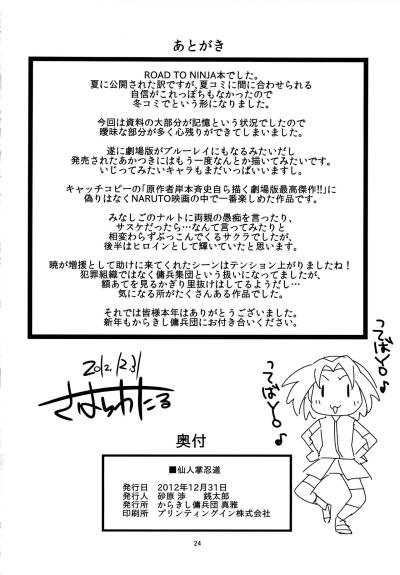 あとがき
ROAD TO NINJA本でした。
夏に公開された訳ですが、夏コミに間に合わせられる
自信がこれっぽちもなかったので
冬コミでという形になりました。
今回は資料の大部分が記憶という状況でしたので
曖昧な部分が多く心残りができてしまいました。
遂に劇場版がブルーレイにもなるみたいだし
発売されたあかつきにはもう一度なんとか描いてみたいです。
いじってみたいキャラもまだいっぱいいますし。
キャッチコピーの「原作者岸本斉史自ら描く劇場版最高傑作!!」に
偽りはなくNARUTO映画の中で一番楽しめた作品です。
みなしごのナルトに両親の愚痴を言ったり、
サスケだったら…なんて言ってみたりと
相変わらずぶっこんでくるサクラでしたが、
後半はヒロインとして輝いていたと思います。
暁が増援として助けに来てくれたシーンはテンション上がりましたね!
犯罪組織ではなく傭兵集団という扱いになってましたが、
額あてを見るかぎり里抜けはしてるようだし…
気になる所がたくさんある作品でした。
それでは皆様本年はありがとうございました。
新年もからきし傭兵団にお付き合いください。
2012.12.31
さはらわたる
ってばYO♪
ってばYO♪
奥付
■仙人掌忍道
発行日 2012年12月31日
発行人 砂原 渉 銭太郎
発行所 からきし傭兵団 真雅
印刷所 プリンティングイン株式会社
24